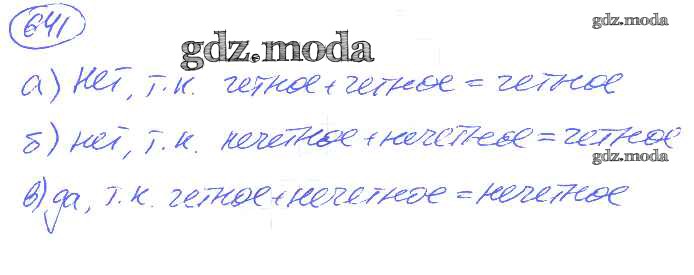 641
gdz.moda
gdz.moda
а) нет, т.к. четное + четное = четное
б) нет, т.к. нечетное + нечетное = четное
gdz.moda
в) да, т.к. четное + нечетное = нечетное
gdz.moda